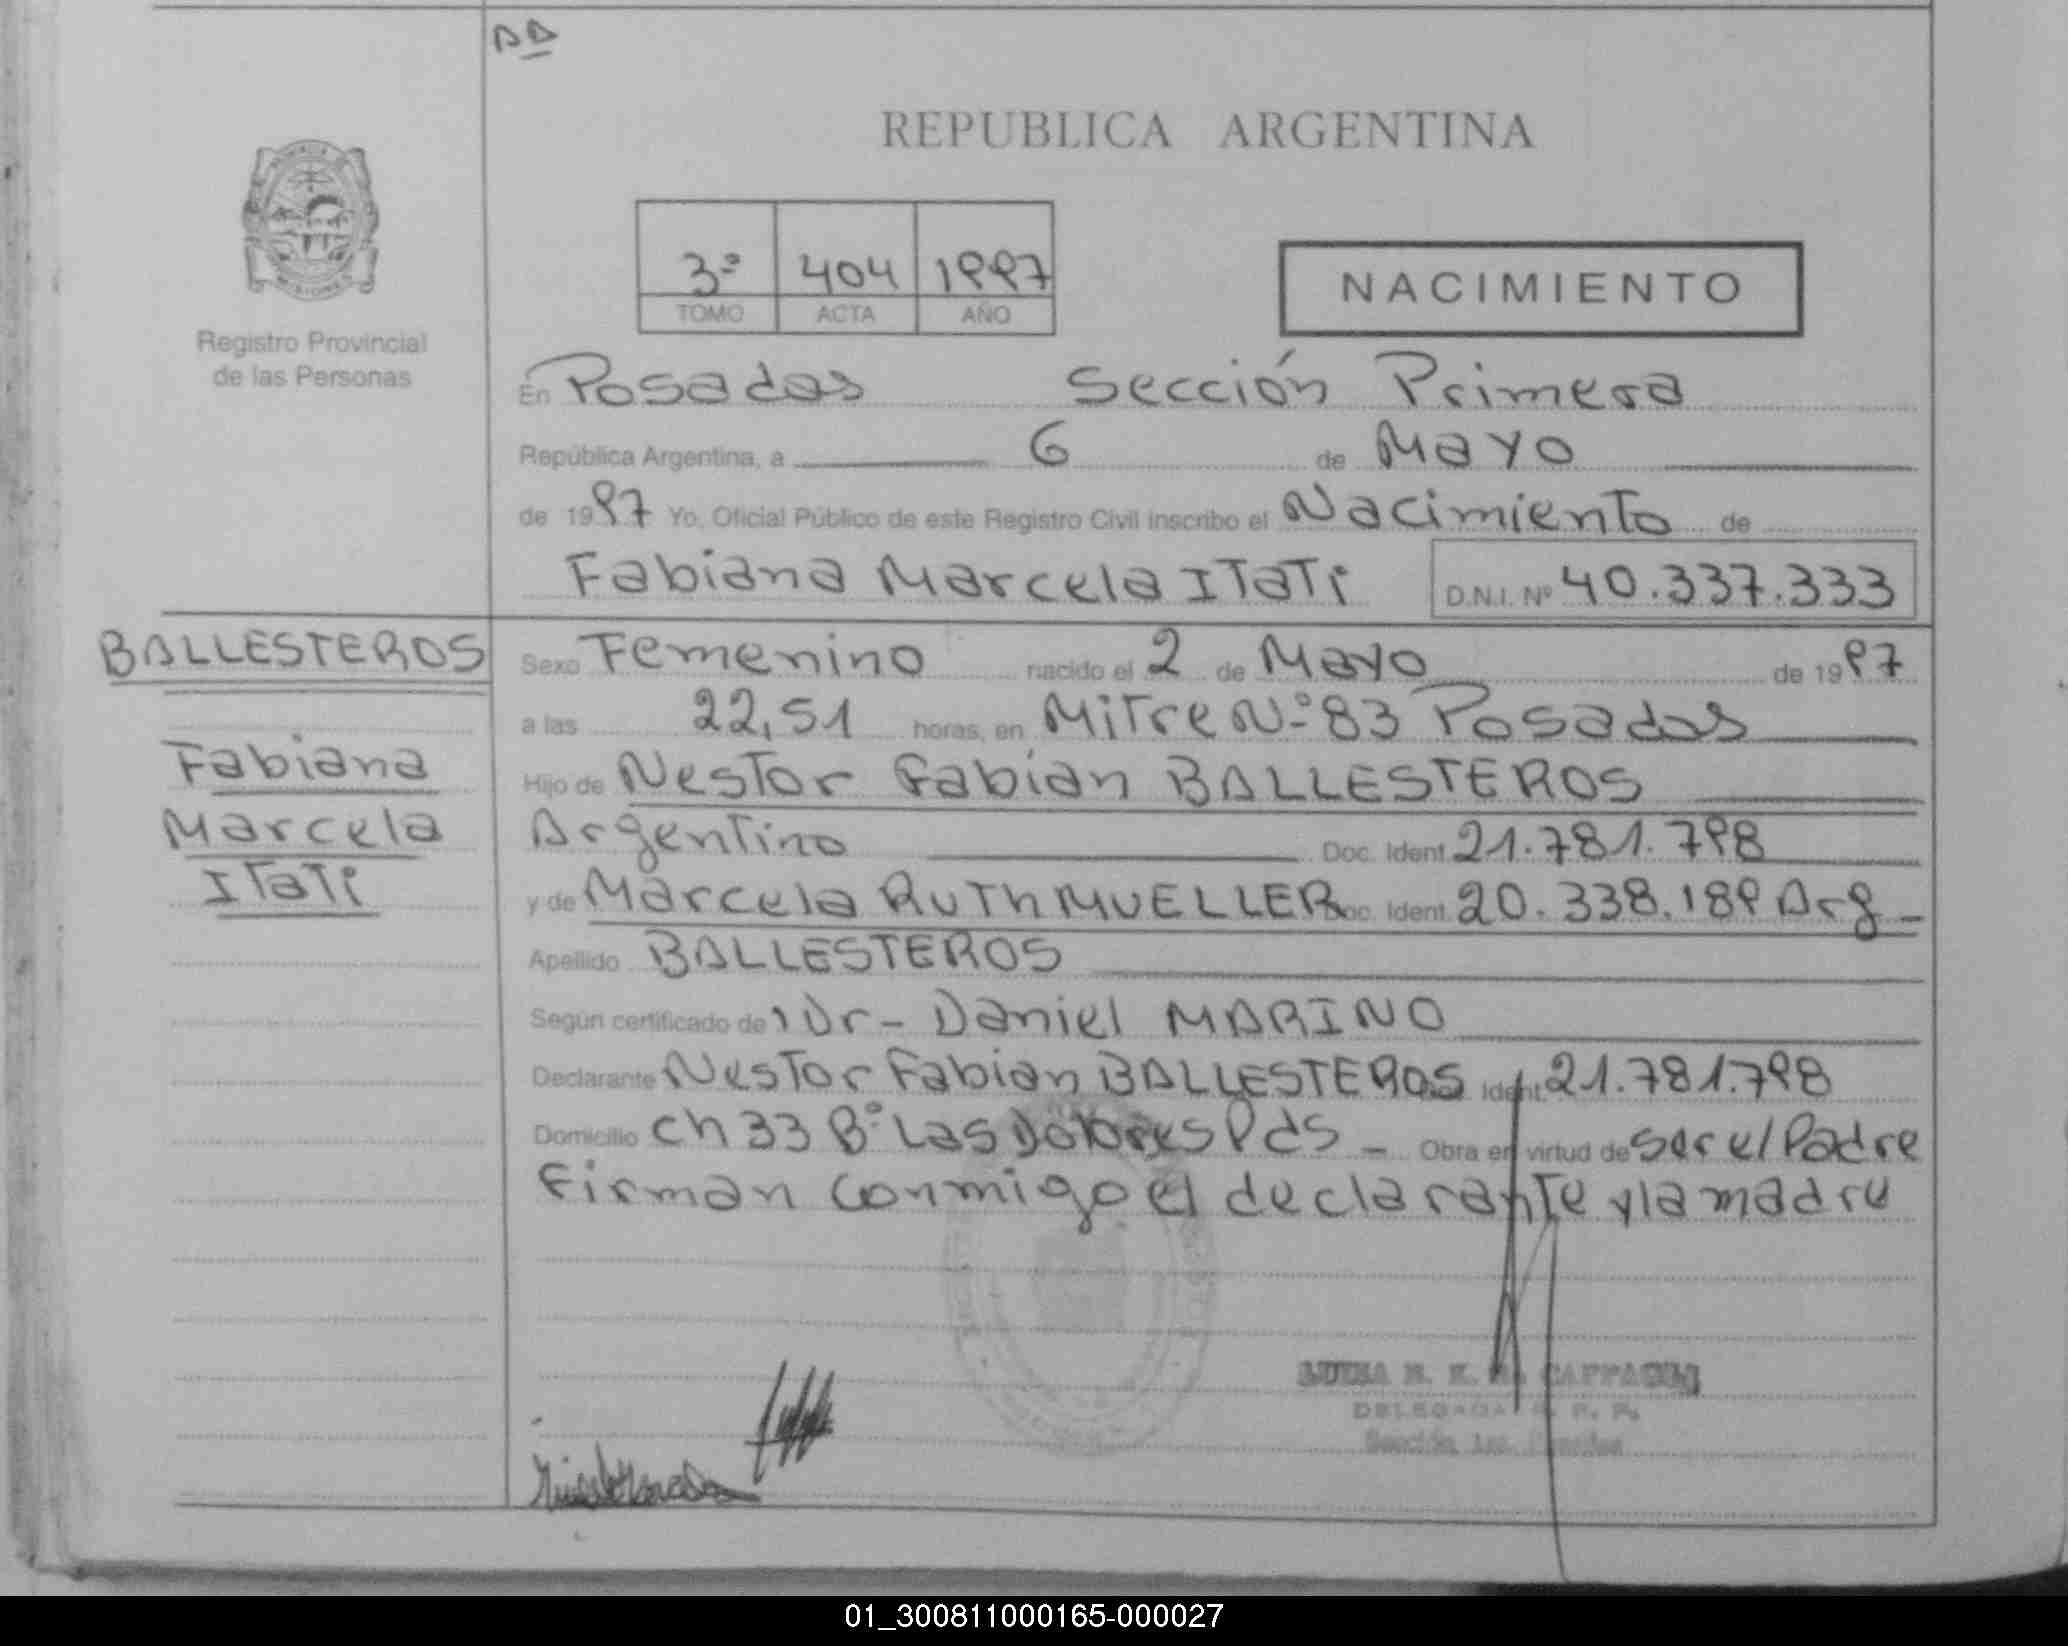 REPUBLICA ARGENTINA
3º 404 1997
TOMO ACTA AÑO
NACIMIENTO
Registro Provincial
de las Personas
En Posadas Sección Primera
República Argentina, a 6 de Mayo
de 1997 Yo, Oficial Público de este Registro Civil inscribo el Nacimiento de
Fabiana Marcela Itati D.N.I. Nº 40.337.333
BALLESTEROS
Fabiana
Marcela
Itati
Sexo Femenino nacido el 2 de Mayo de 1997
a las 22,51 horas, en Mitre Nº 83 Posadas
Hijo de Nestor Fabián BALLESTEROS
Argentino Doc. Ident. 21.781.798
y de Marcela Ruth MUELLER Doc. Ident. 20.338.189 Arg
Apellido BALLESTEROS
Según certificado de Dr - Daniel MARINO
Declarante Nestor Fabian BALLESTEROS Ident. 21.781.798
Domicilio ch 33 Bº Las Dolores Pds - Obra en virtud de ser el Padre
Firman conmigo el declarante y la madre
DELEGADA R. P. P.
01_300811000165-000027